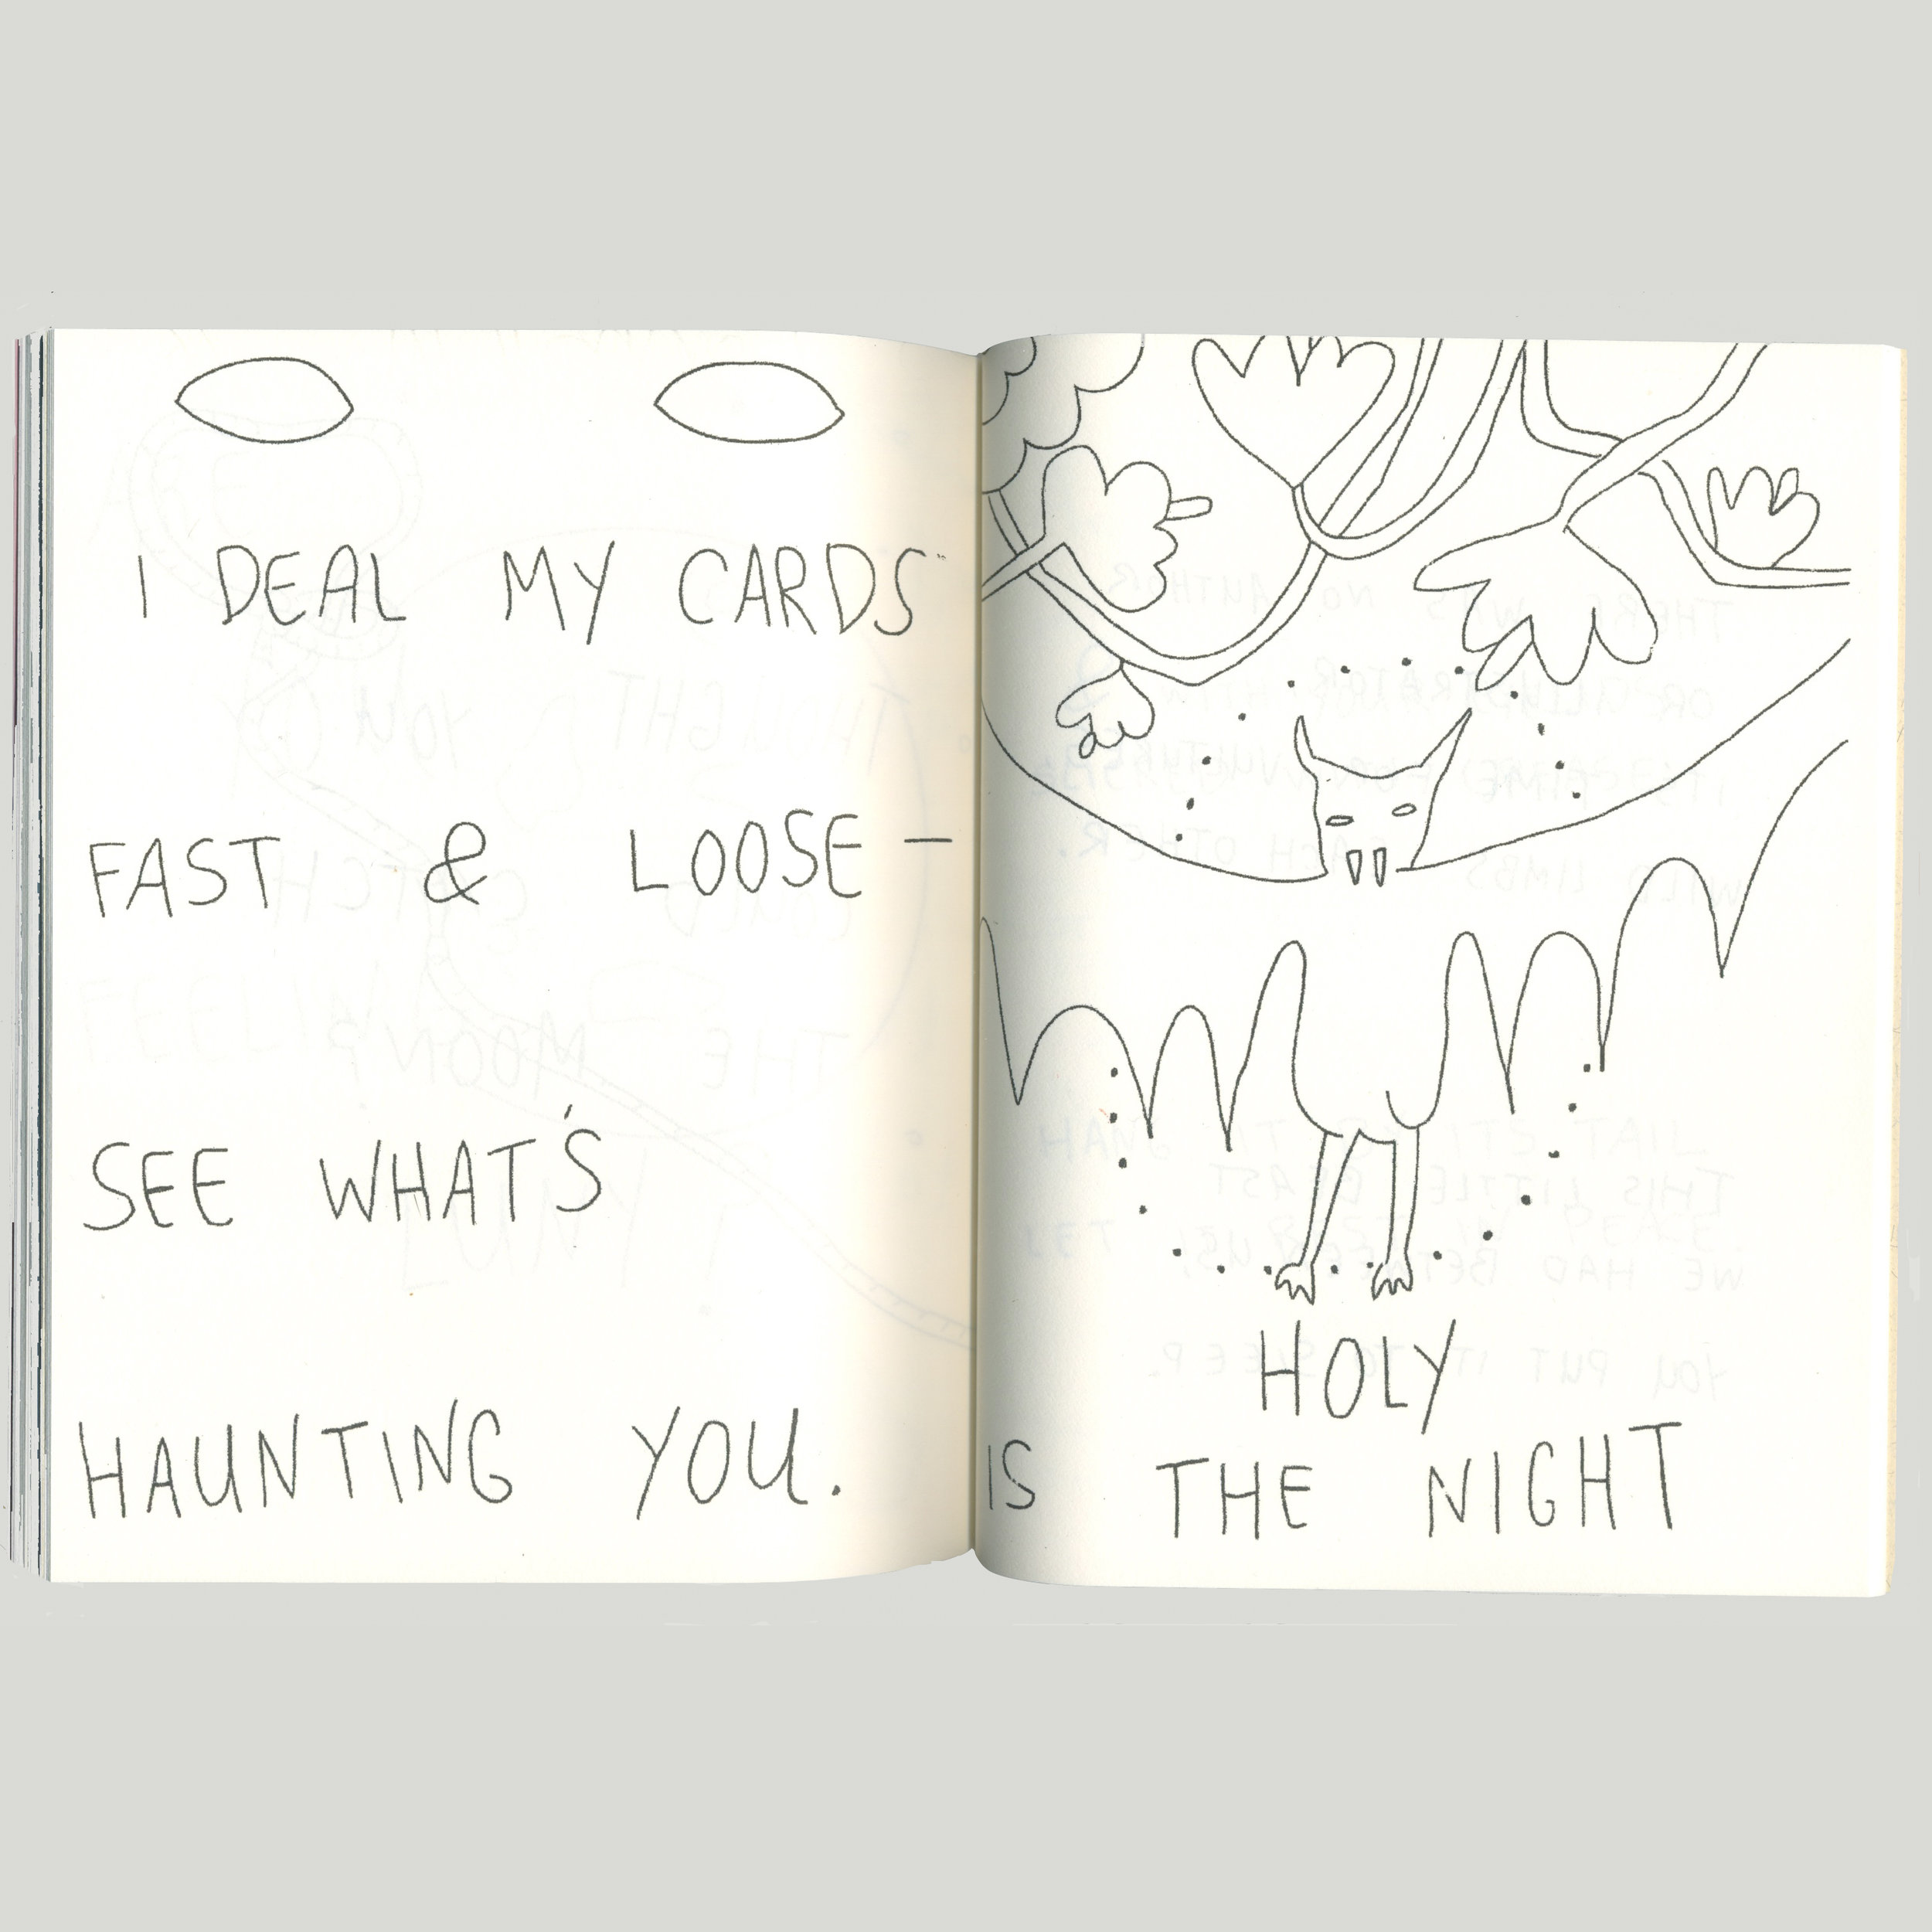 I DEAL MY CARDS
FAST & LOOSE —
SEE WHAT'S
HAUNTING YOU.
HOLY
IS THE NIGHT